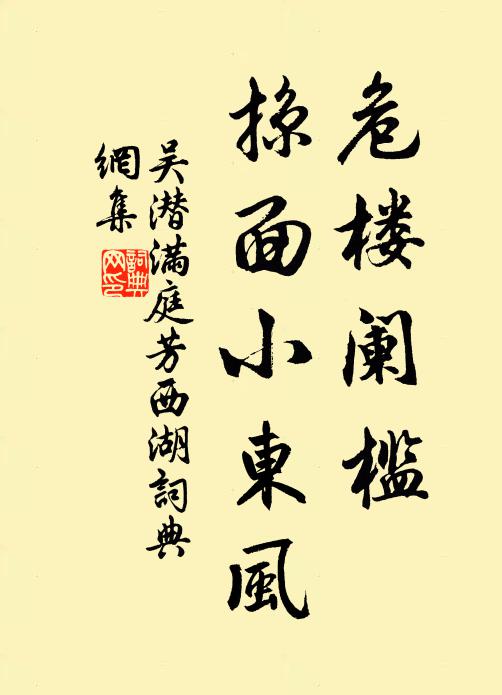 危楼阑槛
掠面小東風
吴潜满庭芳西湖詞典
網集
詞典网印